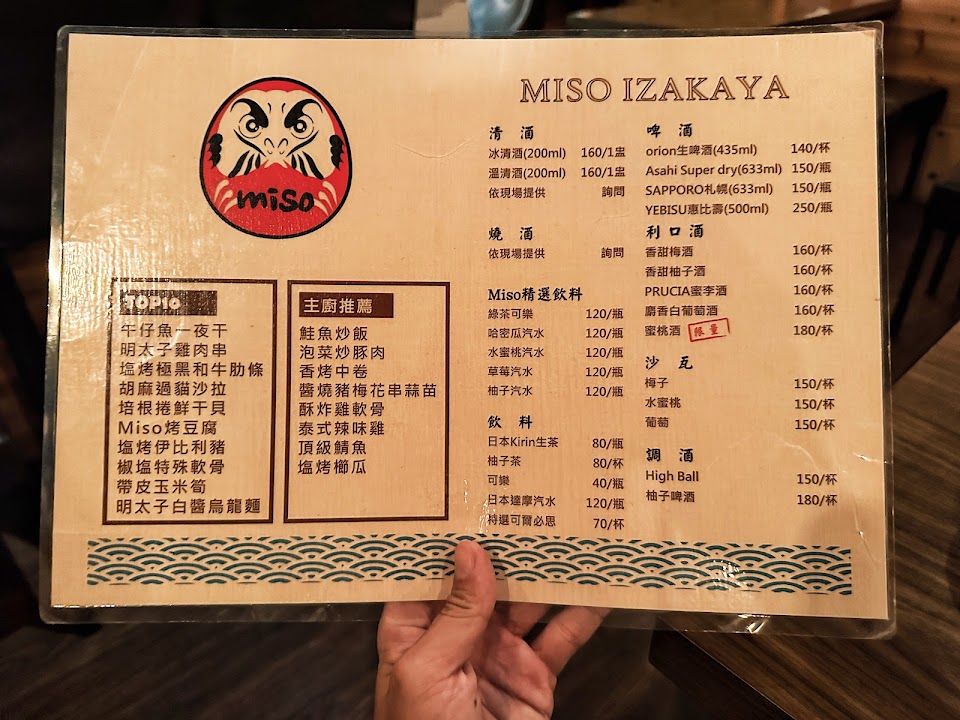 miso
MISO IZAKAYA
TOP10
午仔魚一夜干
明太子雞肉串
塩烤極黑和牛肋條
胡麻過貓沙拉
培根捲鮮干貝
Miso烤豆腐
塩烤伊比利豬
椒塩特殊軟骨
帶皮玉米筍
明太子白醬烏龍麵
主廚推薦
鮭魚炒飯
泡菜炒豚肉
香烤中卷
醬燒豬梅花串蒜苗
酥炸雞軟骨
泰式辣味雞
頂級鯖魚
塩烤櫛瓜
清 酒
冰清酒(200ml) 160/1盅
溫清酒(200ml) 160/1盅
依現場提供 詢問
燒 酒
依現場提供 詢問
Miso精選飲料
綠茶可樂 120/瓶
哈密瓜汽水 120/瓶
水蜜桃汽水 120/瓶
草莓汽水 120/瓶
柚子汽水 120/瓶
飲 料
日本Kirin生茶 80/瓶
柚子茶 80/杯
可樂 40/瓶
日本達摩汽水 120/瓶
特選可爾必思 70/杯
啤 酒
orion生啤酒(435ml) 140/杯
Asahi Super dry(633ml) 150/瓶
SAPPORO札幌(633ml) 150/瓶
YEBISU惠比壽(500ml) 250/瓶
利口酒
香甜梅酒 160/杯
香甜柚子酒 160/杯
PRUCIA蜜李酒 160/杯
麝香白葡萄酒 160/杯
蜜桃酒 限量 180/杯
沙 瓦
梅子 150/杯
水蜜桃 150/杯
葡萄 150/杯
調 酒
High Ball 150/杯
柚子啤酒 180/杯